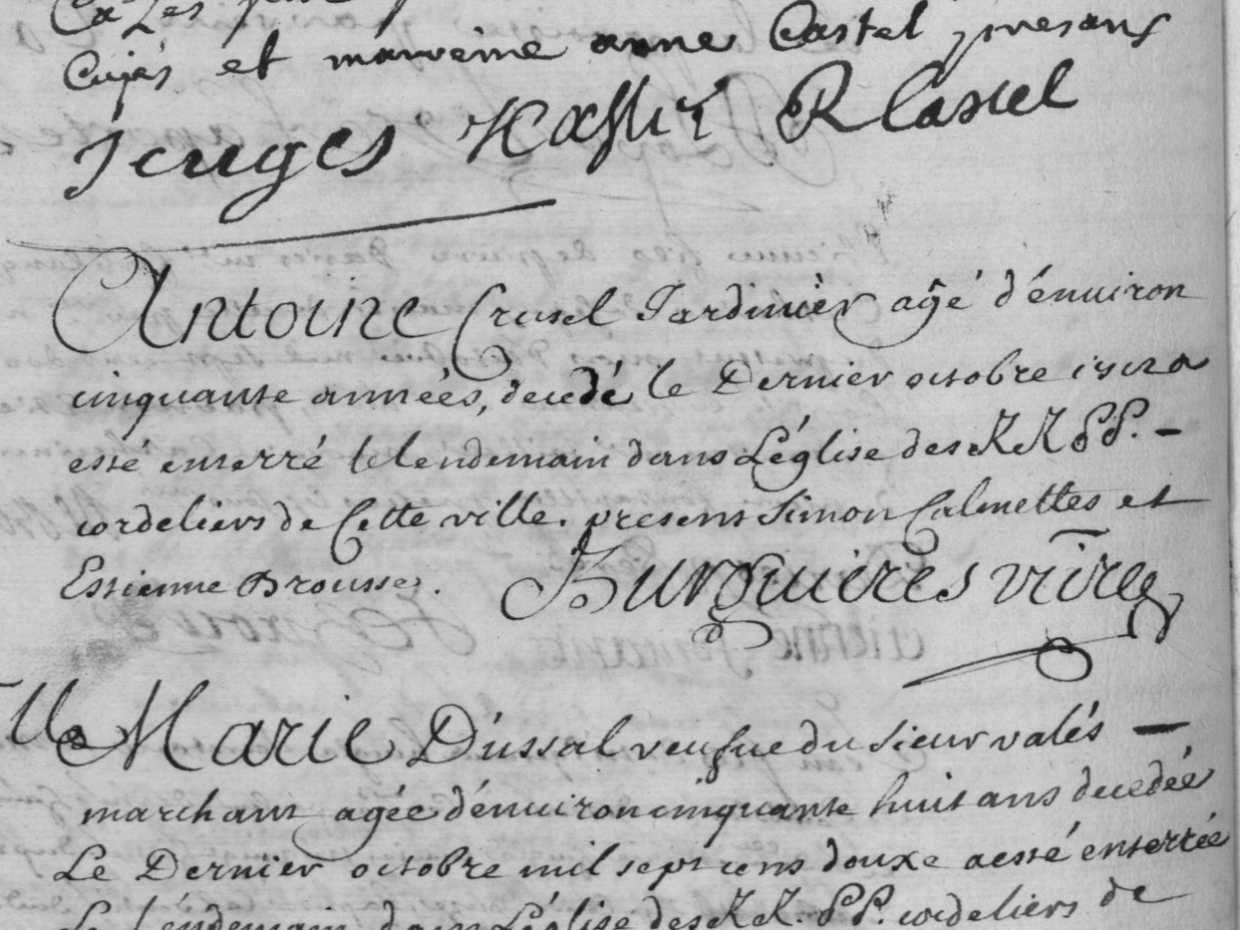 Cujés et marreine anne Castel presans
R Castel
Antoine Crusel Jardinièr agé d'énuiron
cinquante années, decedé le Dernier octobre 1712 a
esté enterré le lendemain dans L'église des RR PP. -
cordeliers de Cette ville. presens Simon Calmettes et
Estienne Brousse. Burguieres vicre
Lle Marie Dussal veufue du sieur valés -
marchant agée d'énuiron cinquante huit ans decedée
Le Dernier octobre mil sept cens douxe a esté enterrée
Le lendemain dans L'église des RR. PP. cordeliers de